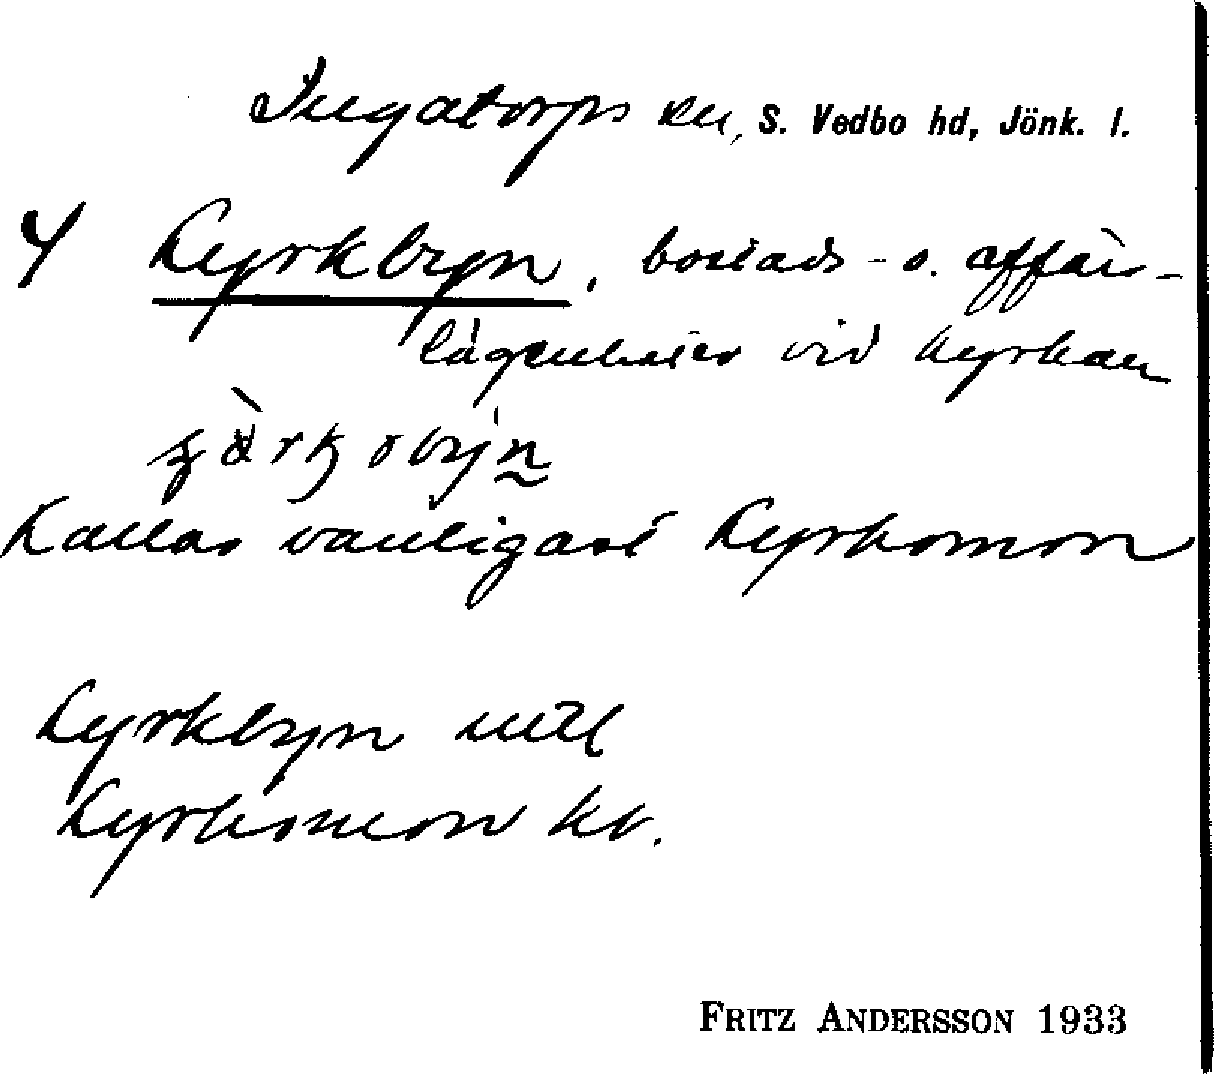 Ingatorps sn, S. Vedbo hd, Jönk. l.
4 Kyrkbyn, bostads- o. affärs-
lägenheter vid kyrkan
Kallas vanligast Kyrkomon
Kyrkbyn
Kyrkomon kv.
FRITZ ANDERSSON 1933